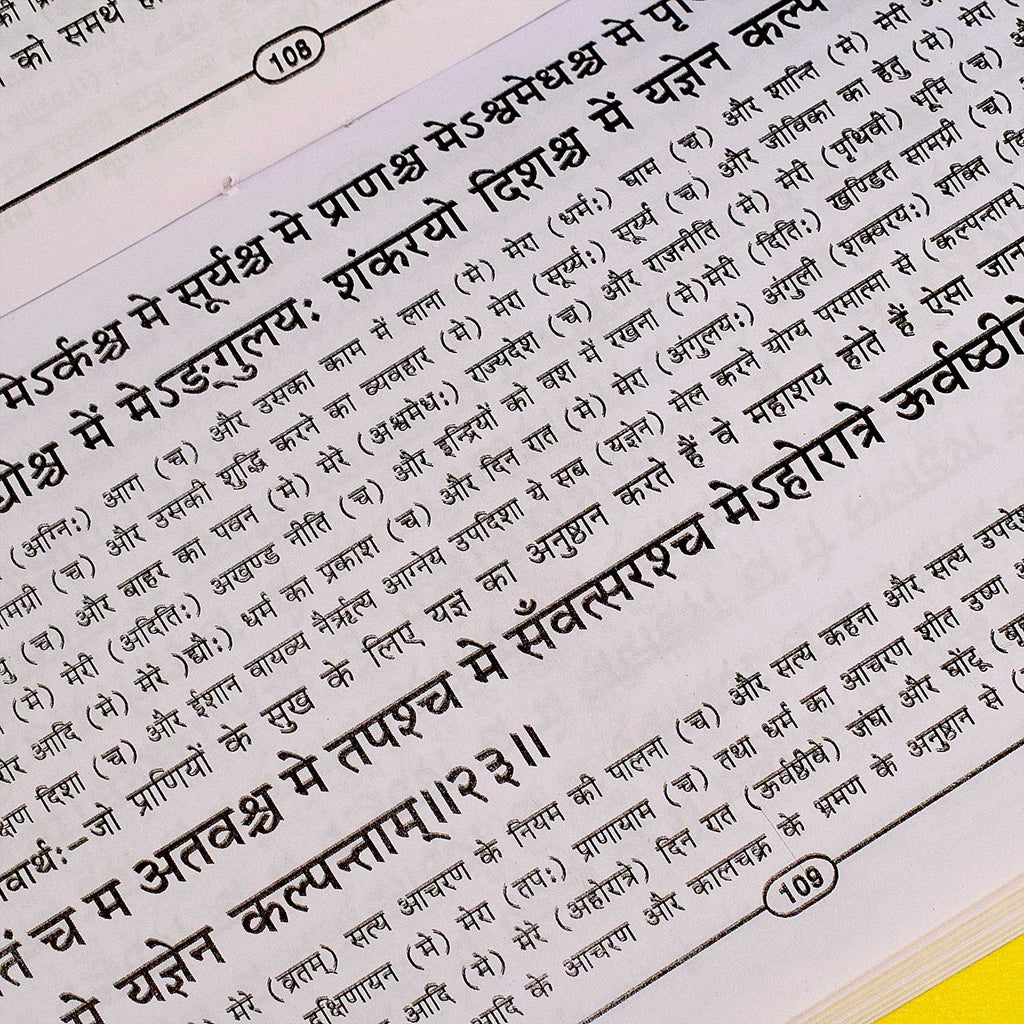 को समर्थ
108
मेऽर्कश्च मे सूर्यश्च मे प्राणश्च मेऽश्वमेधश्च मे
में मेऽङ्गुलयः शंकरयो दिशश्च में यज्ञेन
(अग्निः) आग (च) और उसका काम में लाना (मे) मेरा (धर्मः) घाम (च) और शान्ति (मे) मेरी
(च) और उसकी शुद्धि करने का व्यवहार (मे) मेरा (सूर्य्यः) सूर्य्य (च) और जीविका का हेतु (मे) मेरा
(च) और बाहर का पवन (मे) मेरे (अश्वमेधः) राज्यदेश (च) और राजनीति (मे) मेरी (पृथिवी) भूमि (च)
(मे) मेरी (अदितिः) अखण्ड नीति (च) और इन्द्रियों को वश में रखना (मे)मेरी (दितिः) खण्डित सामग्री (च)
आदि (मे) मेरे )द्यौः) धर्म का प्रकाश (च) और दिन रात (मे) मेरा (अंगुलयः) अंगुली (शक्वरयः) शक्ति
दिशा (च) और ईशान वायव्य नैर्ऋत्य आग्नेय उपदिशा ये सब (यज्ञेन) मेल करने योग्य परमात्मा से (कल्पन्ताम्
जो प्राणियों के सुख के लिए यज्ञ का अनुष्ठान करते हैं वे महाशय होते हैं ऐसा
च म अतवश्च मे तपश्च मे सँवत्सरश्च मेऽहोरात्रे
यज्ञेन कल्पन्ताम्॥२३॥
मेरे (व्रतम्) सत्य आचरण के नियम की पालना (च) और सत्य कहना और सत्य
दक्षिणायन (मे) मेरा (तपः) प्राणायाम (च) तथा धर्म का आचरण शीत उष्ण
आदि (मे) मेरे (अहोरात्रे) दिन रात (ऊर्वष्ठीवे) जंघा और
आदि के आचरण और कालचक्र के भ्रमण के अनुष्ठान से
109